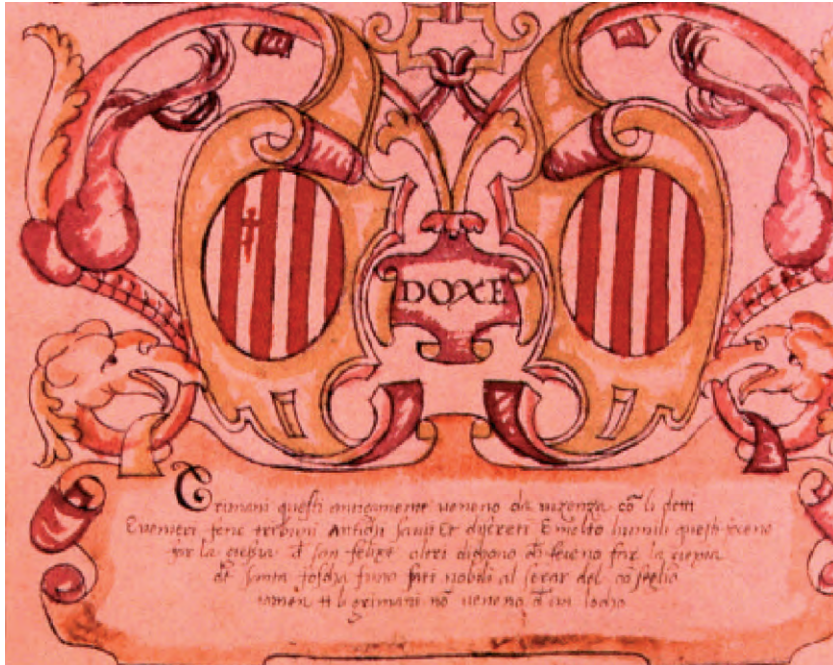 DOXE
Grimani questi anticamente veneno da vizenza cõ li detti
Evenieri fene tribuni Antichi savii Et discreti E molto humili questi feceno
far la giesia d̃ san felize altri dichono
d̃ santa foscha furno fati nobili al serar del cõseglio
tamen li grimani nõ veneno d̃ un locho